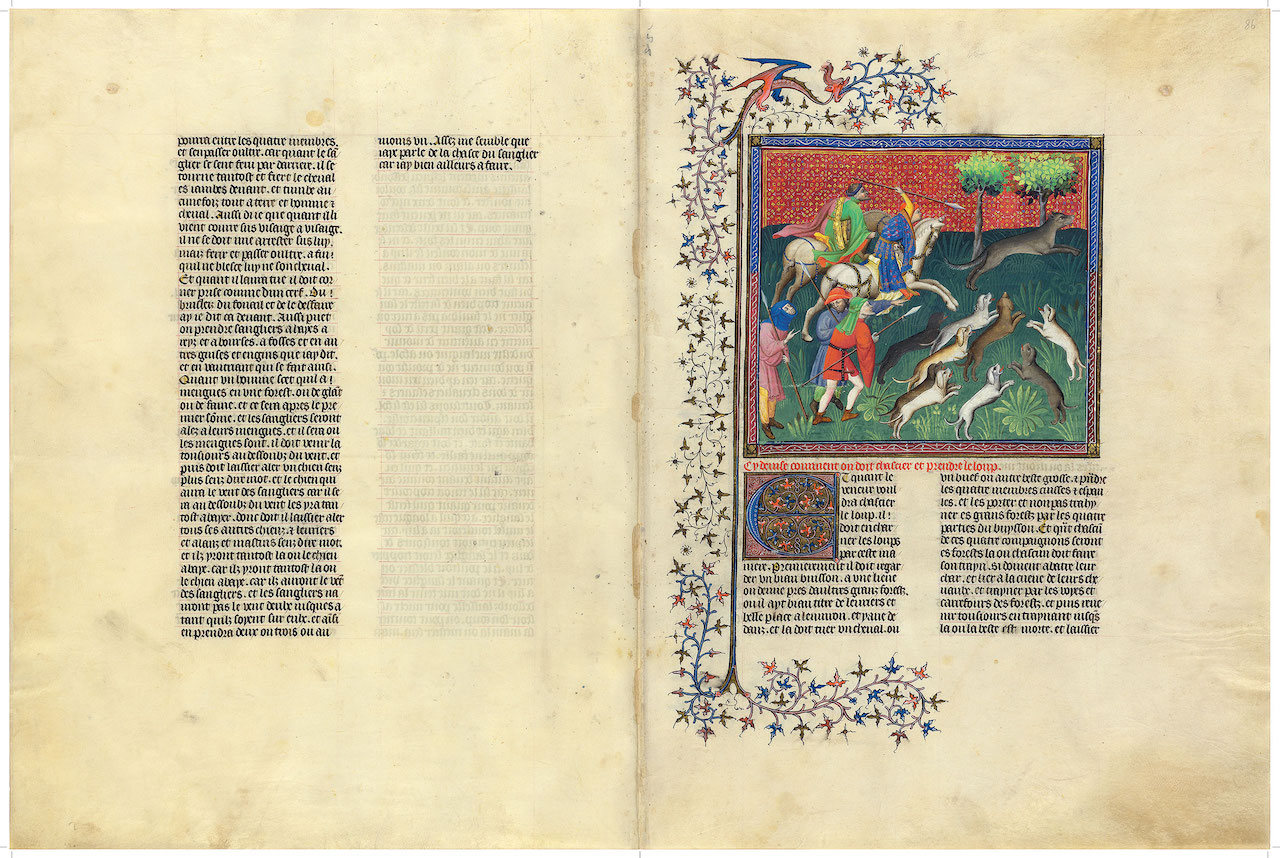 pourra entre les quatre membres.
et sen passer oultre. car quant le sã
glier se sent feru par darrere. il se
tourne tantost et fiert le cheual
es iambes deuant. et tumbe au
cunefoiz tout a terre et homme ⁊
cheual. Aussi di ie que quant il li
vient contre suis visaige a visaige.
il ne se doit mie arrester sus luy.
maiz ferir et passer oultre. a fin
quil ne blesce luy ne son cheual.
Et quant il laura tue il doit cor
ner prise comme dun cerf. Du
brusler. du fouail et de le deffaire
ay ie dit ca deuant. Aussi puet
on prendre sangliers a hayes a
reyz et a bourses. a fosses et en au
tres guises et engins que iay dit.
et en vautrant qui se fait ainsi.
Quant vn homme scet quil a
mengues en vne forest. ou de glãt
ou de faine. et ce sera apres le pre
mier somne. et les sangliers seront
alez a leurs mengues. et il sera ou
les mengues sont. il doit venir la
tousiours au dessoubz du vent. et
puis doit laissier aler vn chien senz
plus senz dire mot. et le chien qui
aura le vent des sangliers car il se
ra au dessoubz du vent les yra tan
tost abayer. donc doit il laissier aler
tous ses autres chiens. ⁊ leuriers
et alanz et mastins senz dire mot.
et ilz yront tantost la ou le chien
abaye. car ilz yront tantost la ou
le chien abaye. car ilz auront le vẽt
des sangliers. et les sangliers na
uront pas le vent deulx iusques a
tant quilz soyent sur eulx. et aĩsi
en prendra deux ou trois ou au
moins vn. Assez me semble que
iaye parle de la chasce du sanglier
car iay bien ailleurs a faire.
86
Cy deuise comment on doit chascier et prendre le loup.
Et quant le
veneur voul
dra chascier
le loup. il
doit enchar
ner les loups
par ceste ma
niere. Premierement il doit regar
der vn biau buisson. a vne lieue
ou demie pres daultres granz foresz.
ou il ayt biau titre de leuriers et
belle place a lenuiron. et yaue de
danz. et la doit tuer vn cheual. ou
vn buef ou autre beste grosse. ⁊ prẽdre
les quatre membres cuisses ⁊ espau
les. et les porter et non pas trahy
ner es grans foresz par les quatre
parties du buysson. Et que chascũ
de ces quatre compaignons seront
es foresz la ou chascun doit faire
son trayn. si doiuent abatre leur
char. et lier a la cueue de leurs che
uaulx. et trayner par les voyes et
carrefours des foresz. et puis reue
nir tousiours en traynant iusqs̃
la ou la beste est morte. et laissier